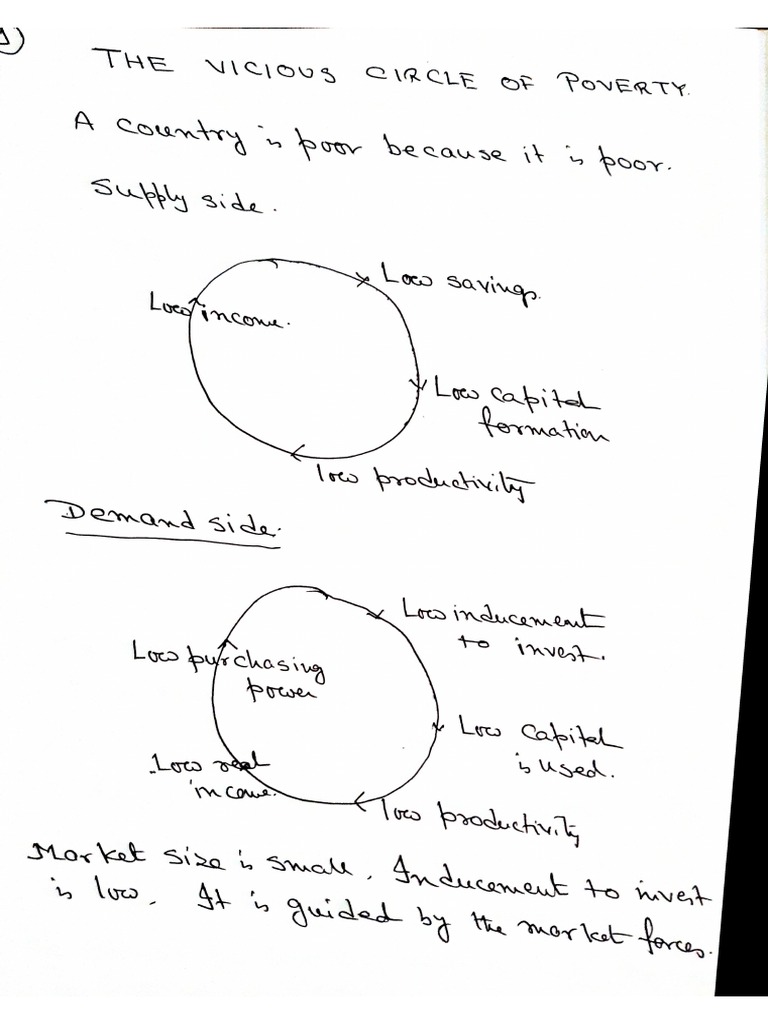 1)
THE VICIOUS CIRCLE OF POVERTY.
A country is poor because it is poor.
Supply side.
Low savings.
Low income.
Low capital
formation
low productivity
Demand side.
Low inducement
to invest.
Low purchasing
power
Low capital
is used.
Low real
income.
low productivity
Market size is small. Inducement to invest
is low. It is guided by the market forces.